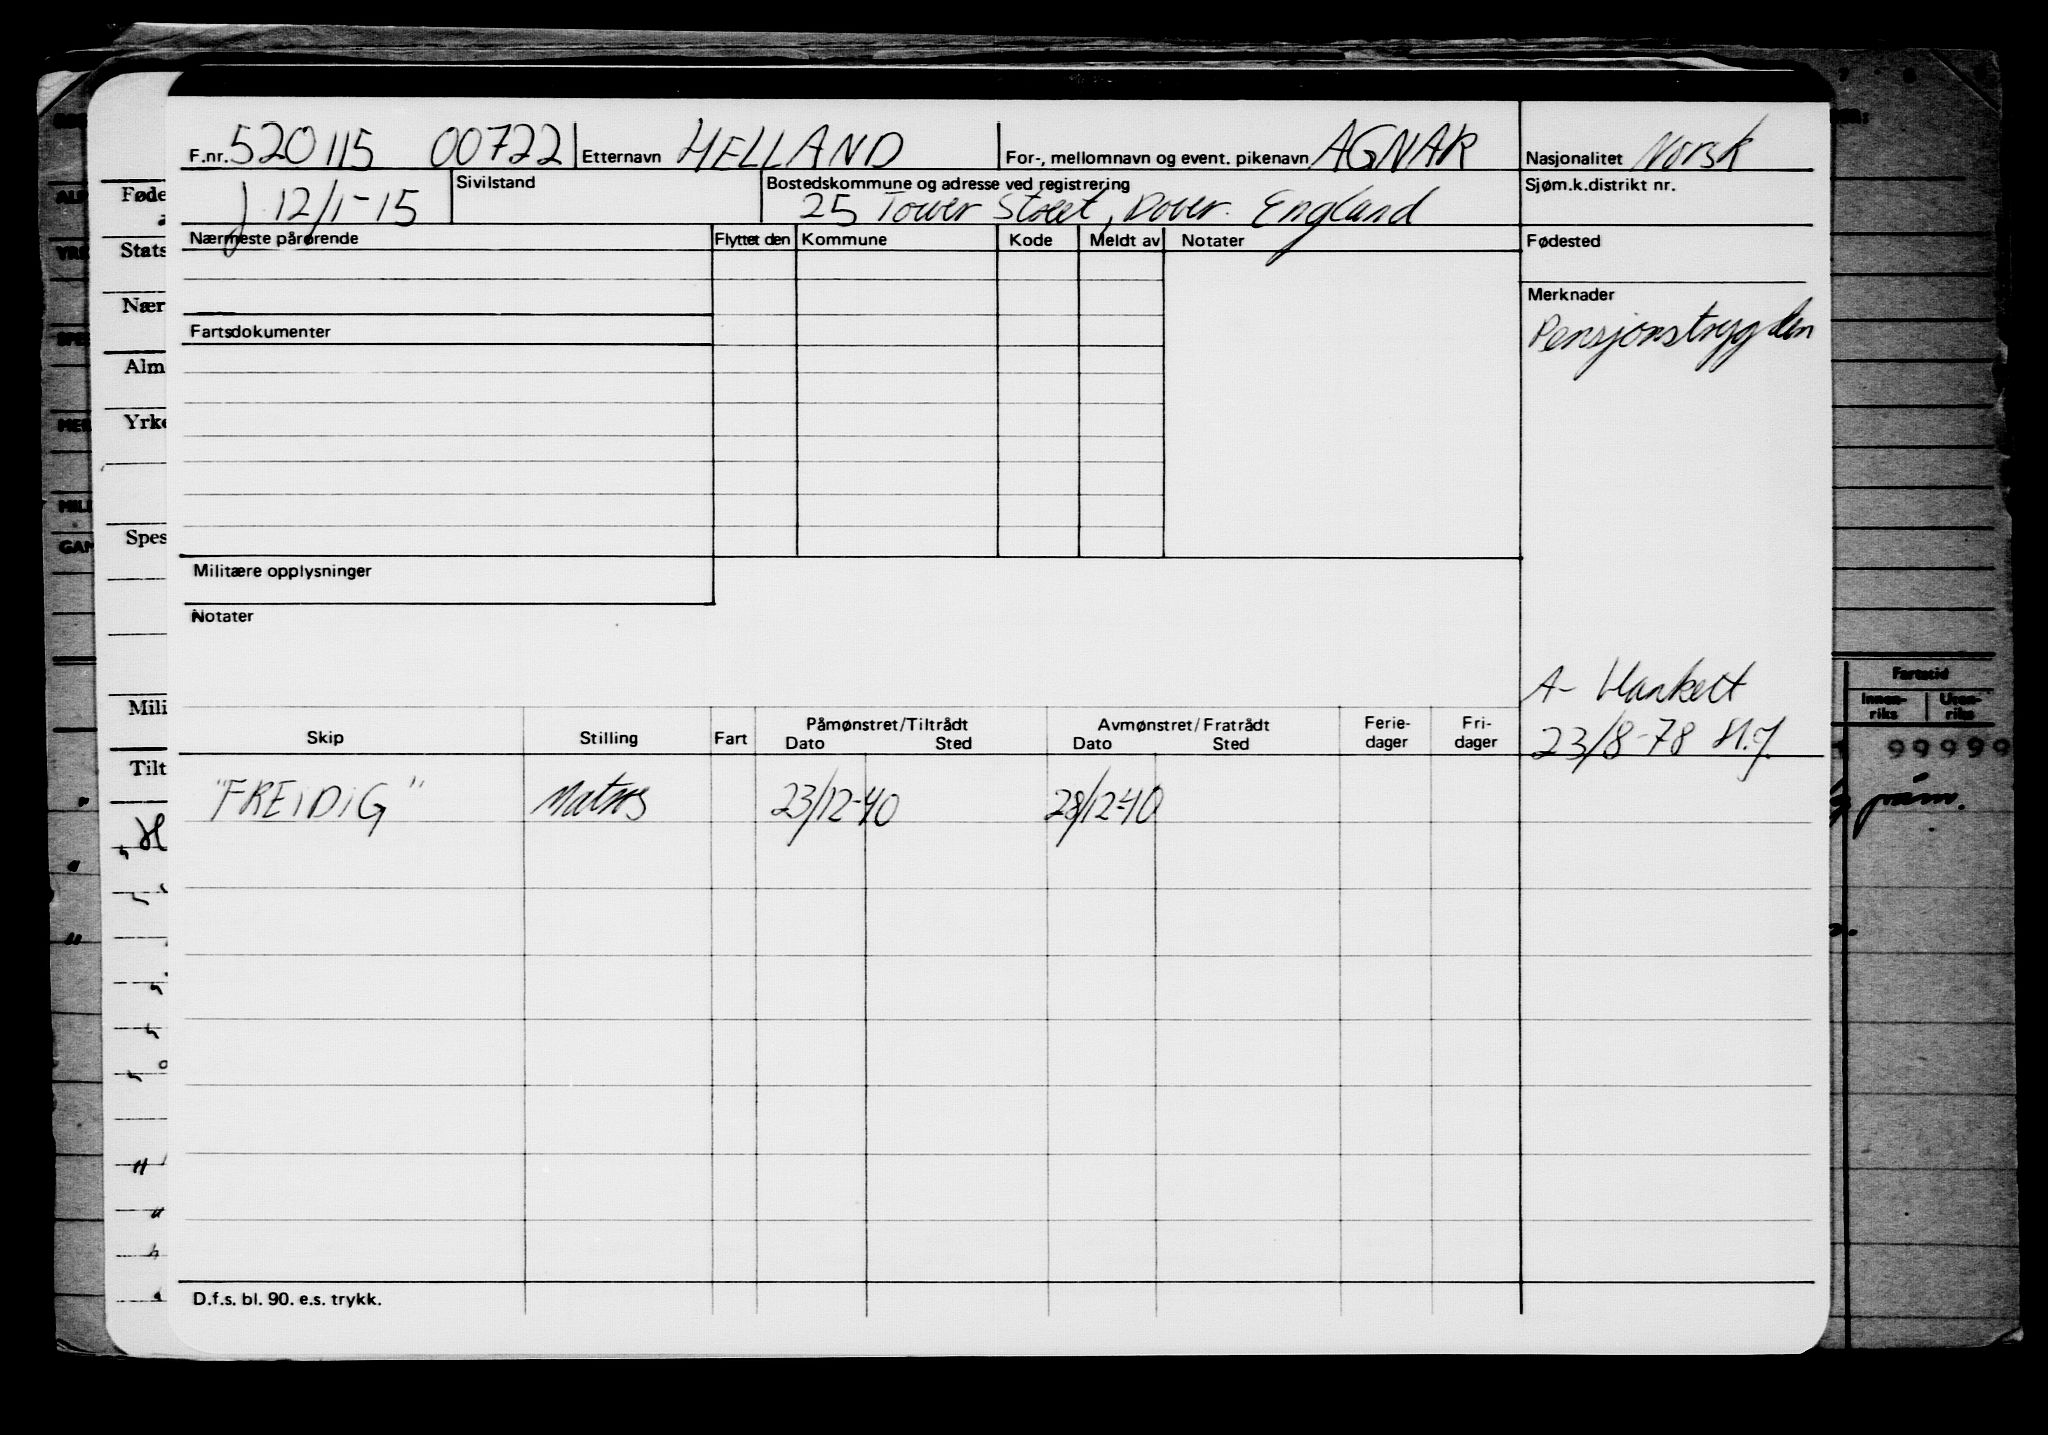 F.nr. 520115 00722 Etternavn HELLAND For-, mellomnavn og event. pikenavn AGNAR Nasjonalitet Norsk
12/1-15 Sivilstand Bostedskommune og adresse ved registrering 25 Tower Street, Dover. England Sjøm.k.distrikt nr.
Nærmeste pårørende Flyttet den Kommune Kode Meldt av Notater Fødested
Merknader
Pensjonstrygden
Fartsdokumenter
Militære opplysninger
Notater
A- blankett
23/8-78
Skip Stilling Fart Påmønstret/Tiltrådt Dato Sted Avmønstret/Fratrådt Dato Sted Ferie-dager Fri-dager
"FREIDIG" Matros 23/12-40 28/12-40
D.f.s. bl. 90. e.s. trykk.
Føde
Stats
Nær
Alm
Yrke
Spes
Mili
Tilt
Fartstid
Innen-riks Uten-riks
99999